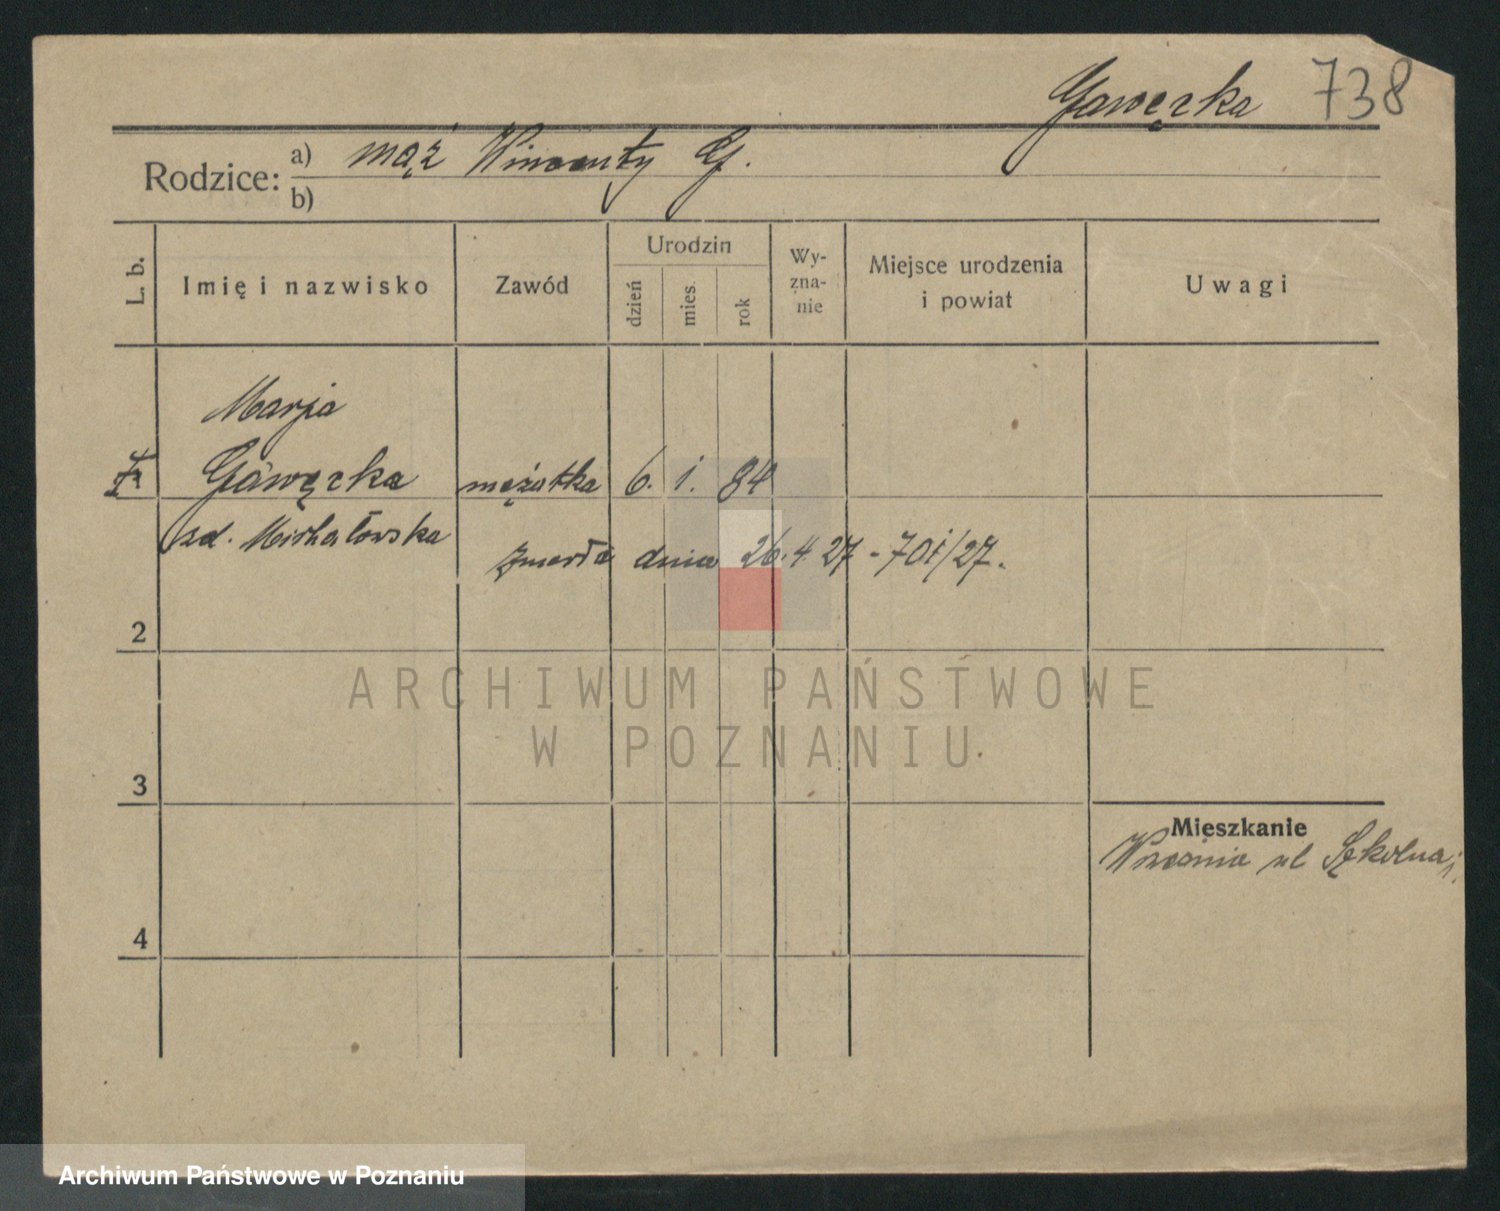 Gawęcka 738
Rodzice: a) mąż Wincenty G.
b)
L. b.
Imię i nazwisko
Zawód
Urodzin
dzień
mies.
rok
Wy-
zna-
nie
Miejsce urodzenia
i powiat
Uwagi
Marja
Gawęcka mężatka 6. 1. 84
zd. Michałowska
zmarła dnia 26.4 27 - 701/27.
2
3
4
Mieszkanie
Września ul Szkolna
ARCHIWUM PAŃSTWOWE
W POZNANIU
Archiwum Państwowe w Poznaniu